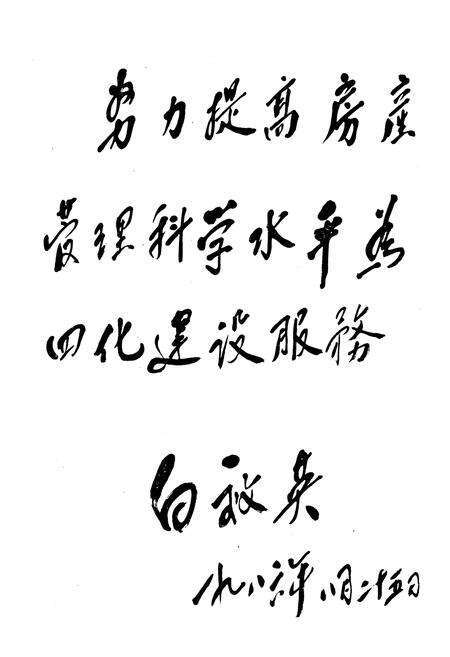 努力提高房產
管理科学水平为
四化建设服務
白
一九八六年八月二十五日